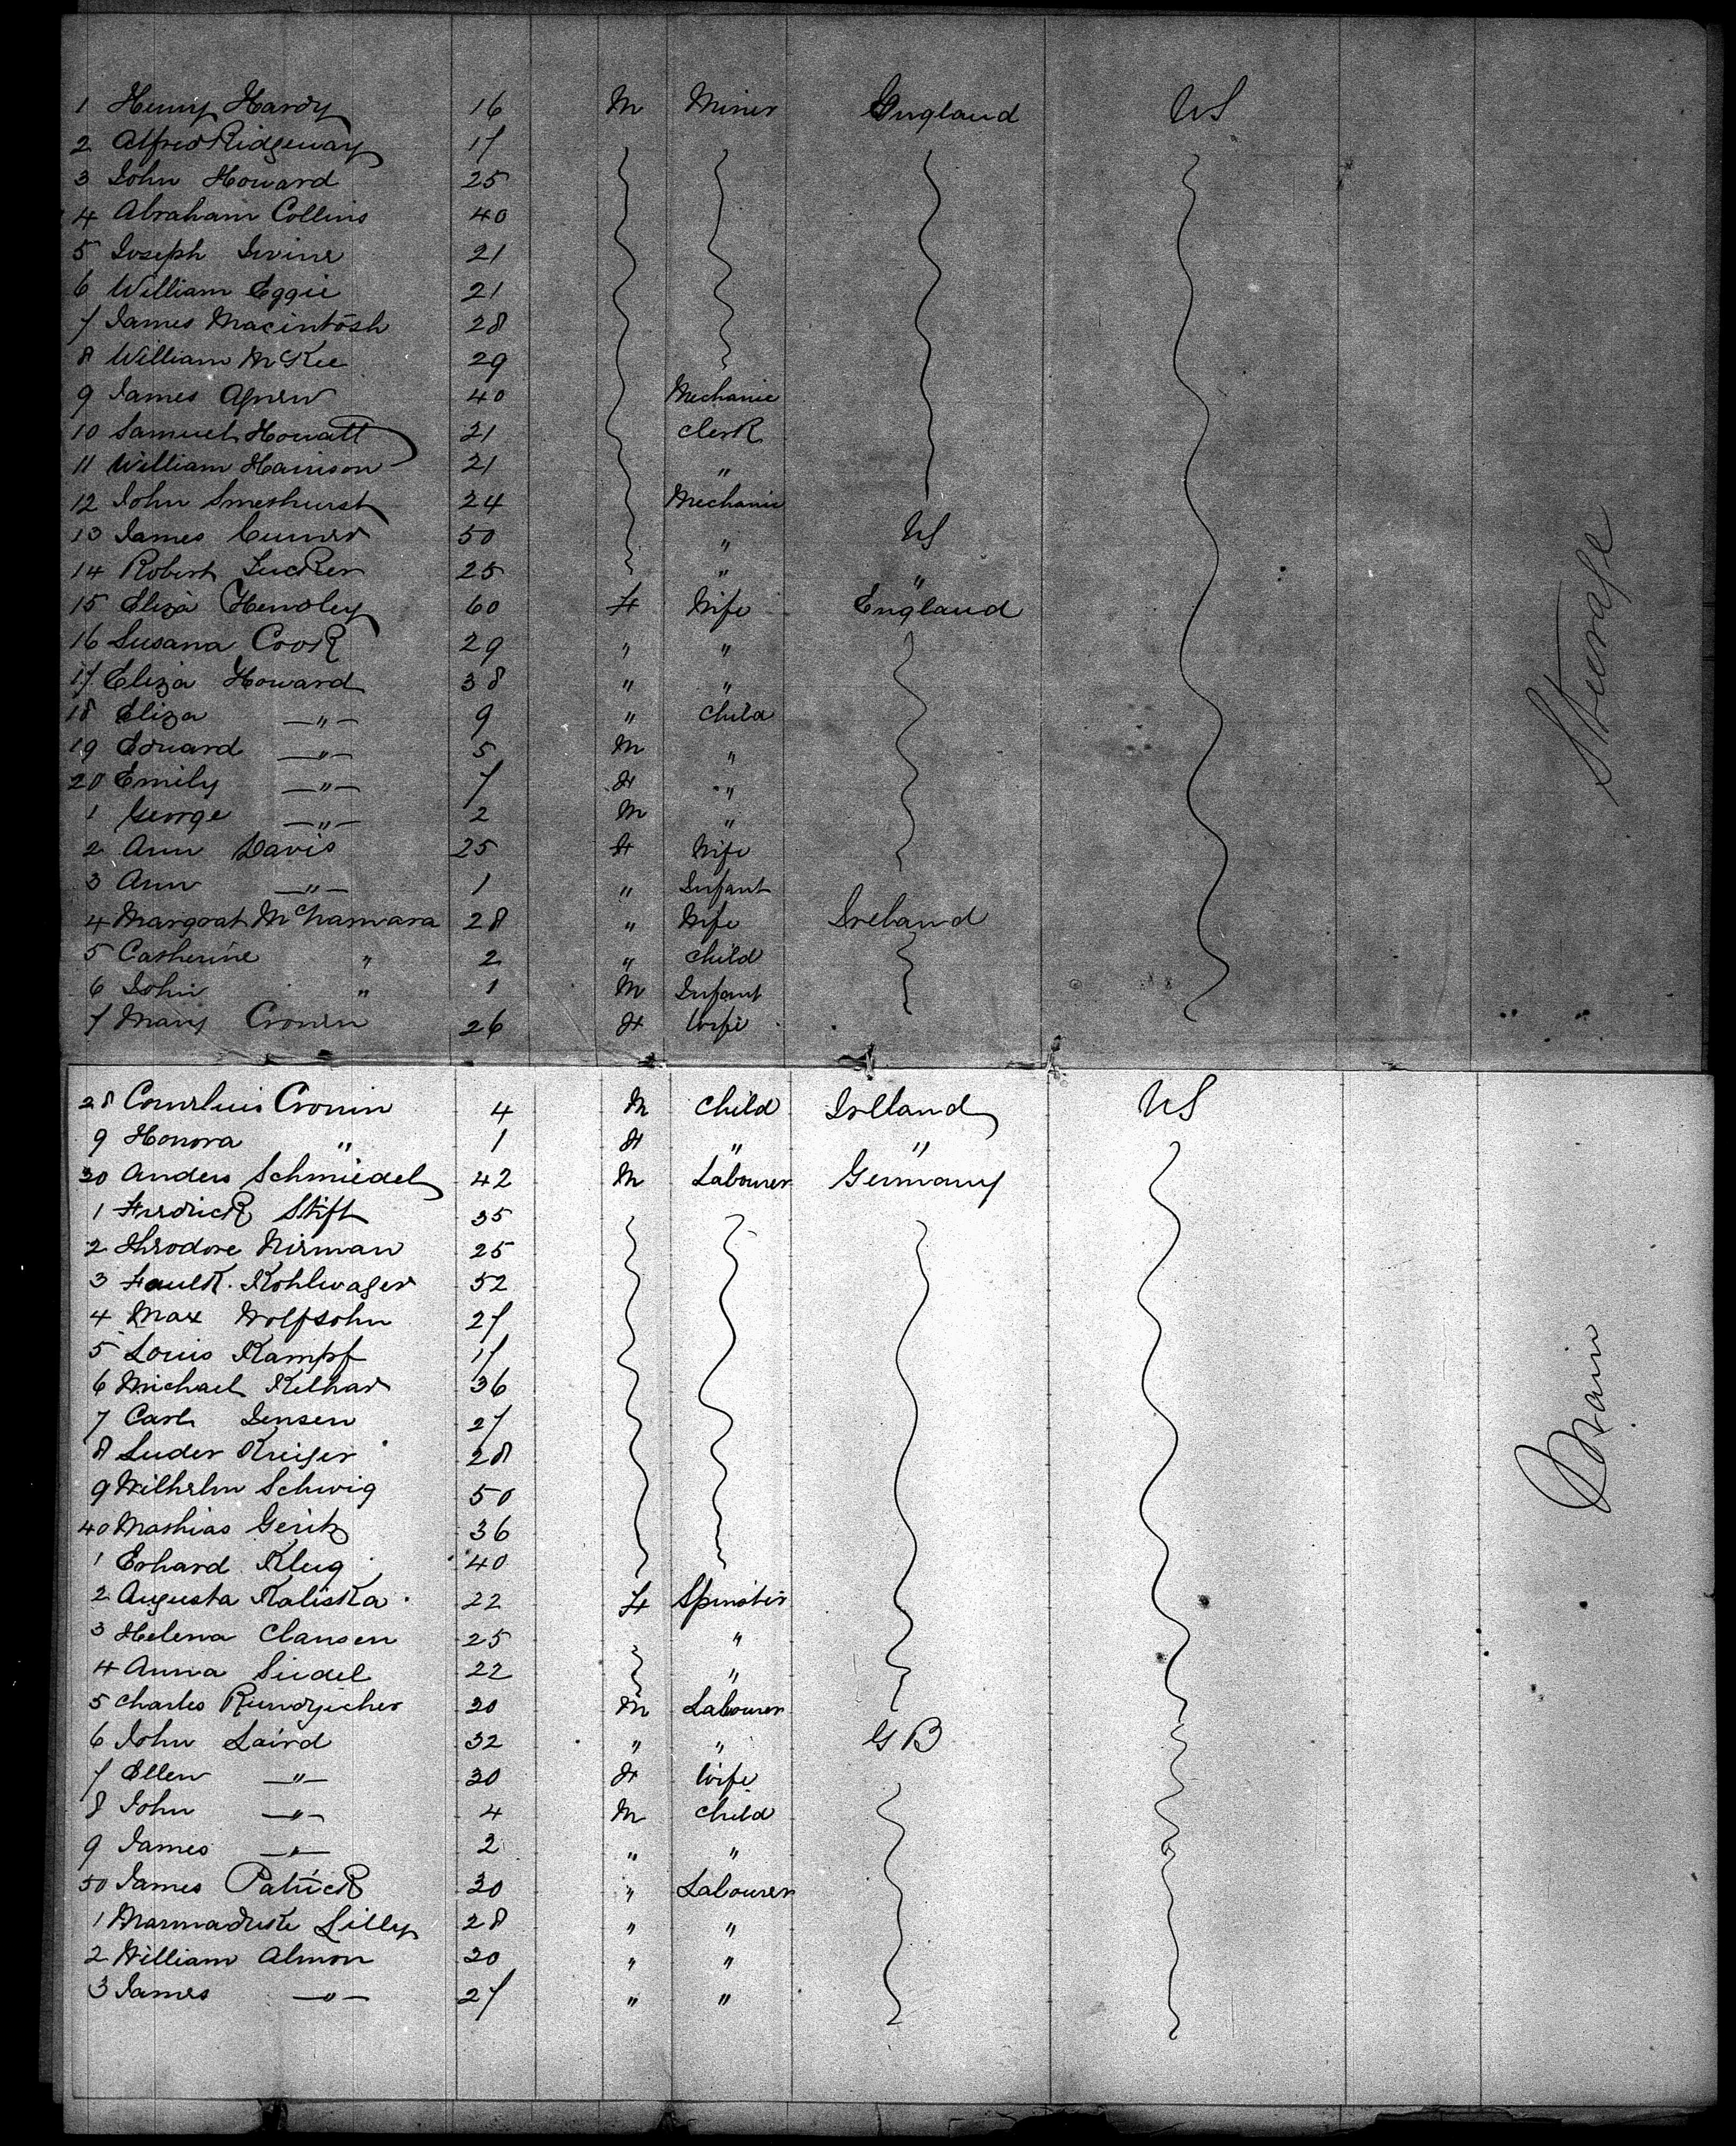 1 Henry Hardy 16 M Miner England US
2 Alfred Ridgeway 17
3 John Howard 25
4 Abraham Collins 40
5 Joseph Irvine 21
6 William Eggie 21
7 James Macintosh 28
8 William McKee 29
9 James Agnew 40 Mechanic
10 Samuel Howatt 21 Clerk
11 William Harrison 21 "
12 John Smethurst 24 Mechanic
13 James 50 " US
14 Robert Tucker 25 " "
15 Eliza Hendley 60 F Wife England
16 Susana Cook 29 " "
17 Eliza Howard 38 " "
18 Eliza —"— 9 " Child
19 Edward —"— 5 M "
20 Emily —"— 7 F "
1 George —"— 2 M "
2 Ann Davis 25 F Wife
3 Ann —"— 1 " Infant
4 Margoat McNamara 28 " Wife Ireland
5 Catherine " 2 " Child
6 John " 1 M Infant
7 Mary Cronin 26 F Wife
Steerage
28 Cornelius Cronin 4 M Child Ireland US
9 Honora " 1 F " "
30 Anders Schmiedel 42 M Labourer Germany
1 Fredrick Stift 35
2 Theodore Nirman 25
3 Faulk. Kohlwager 52
4 Max Wolfsohn 27
5 Louis Kampf 17
6 Michael Kelhar 36
7 Carl Jensen 27
8 Luder Kreiger 28
9 Wilhelm Schwig 50
40 Mathias Geritz 36
1 Erhard Klug 40
2 Augusta Kaliska 22 F Spinster
3 Helena Clausen 25 "
4 Anna Siedel 22 "
5 Charles 20 M Labourer
6 John Laird 32 " " GB
7 Ellen —"— 30 F Wife
8 John —"— 4 M Child
9 James —"— 2 " "
50 James Patrick 30 " Labourer
1 Marmaduke Lilly 28 " "
2 William Almon 30 " "
3 James —"— 27 " "
Main